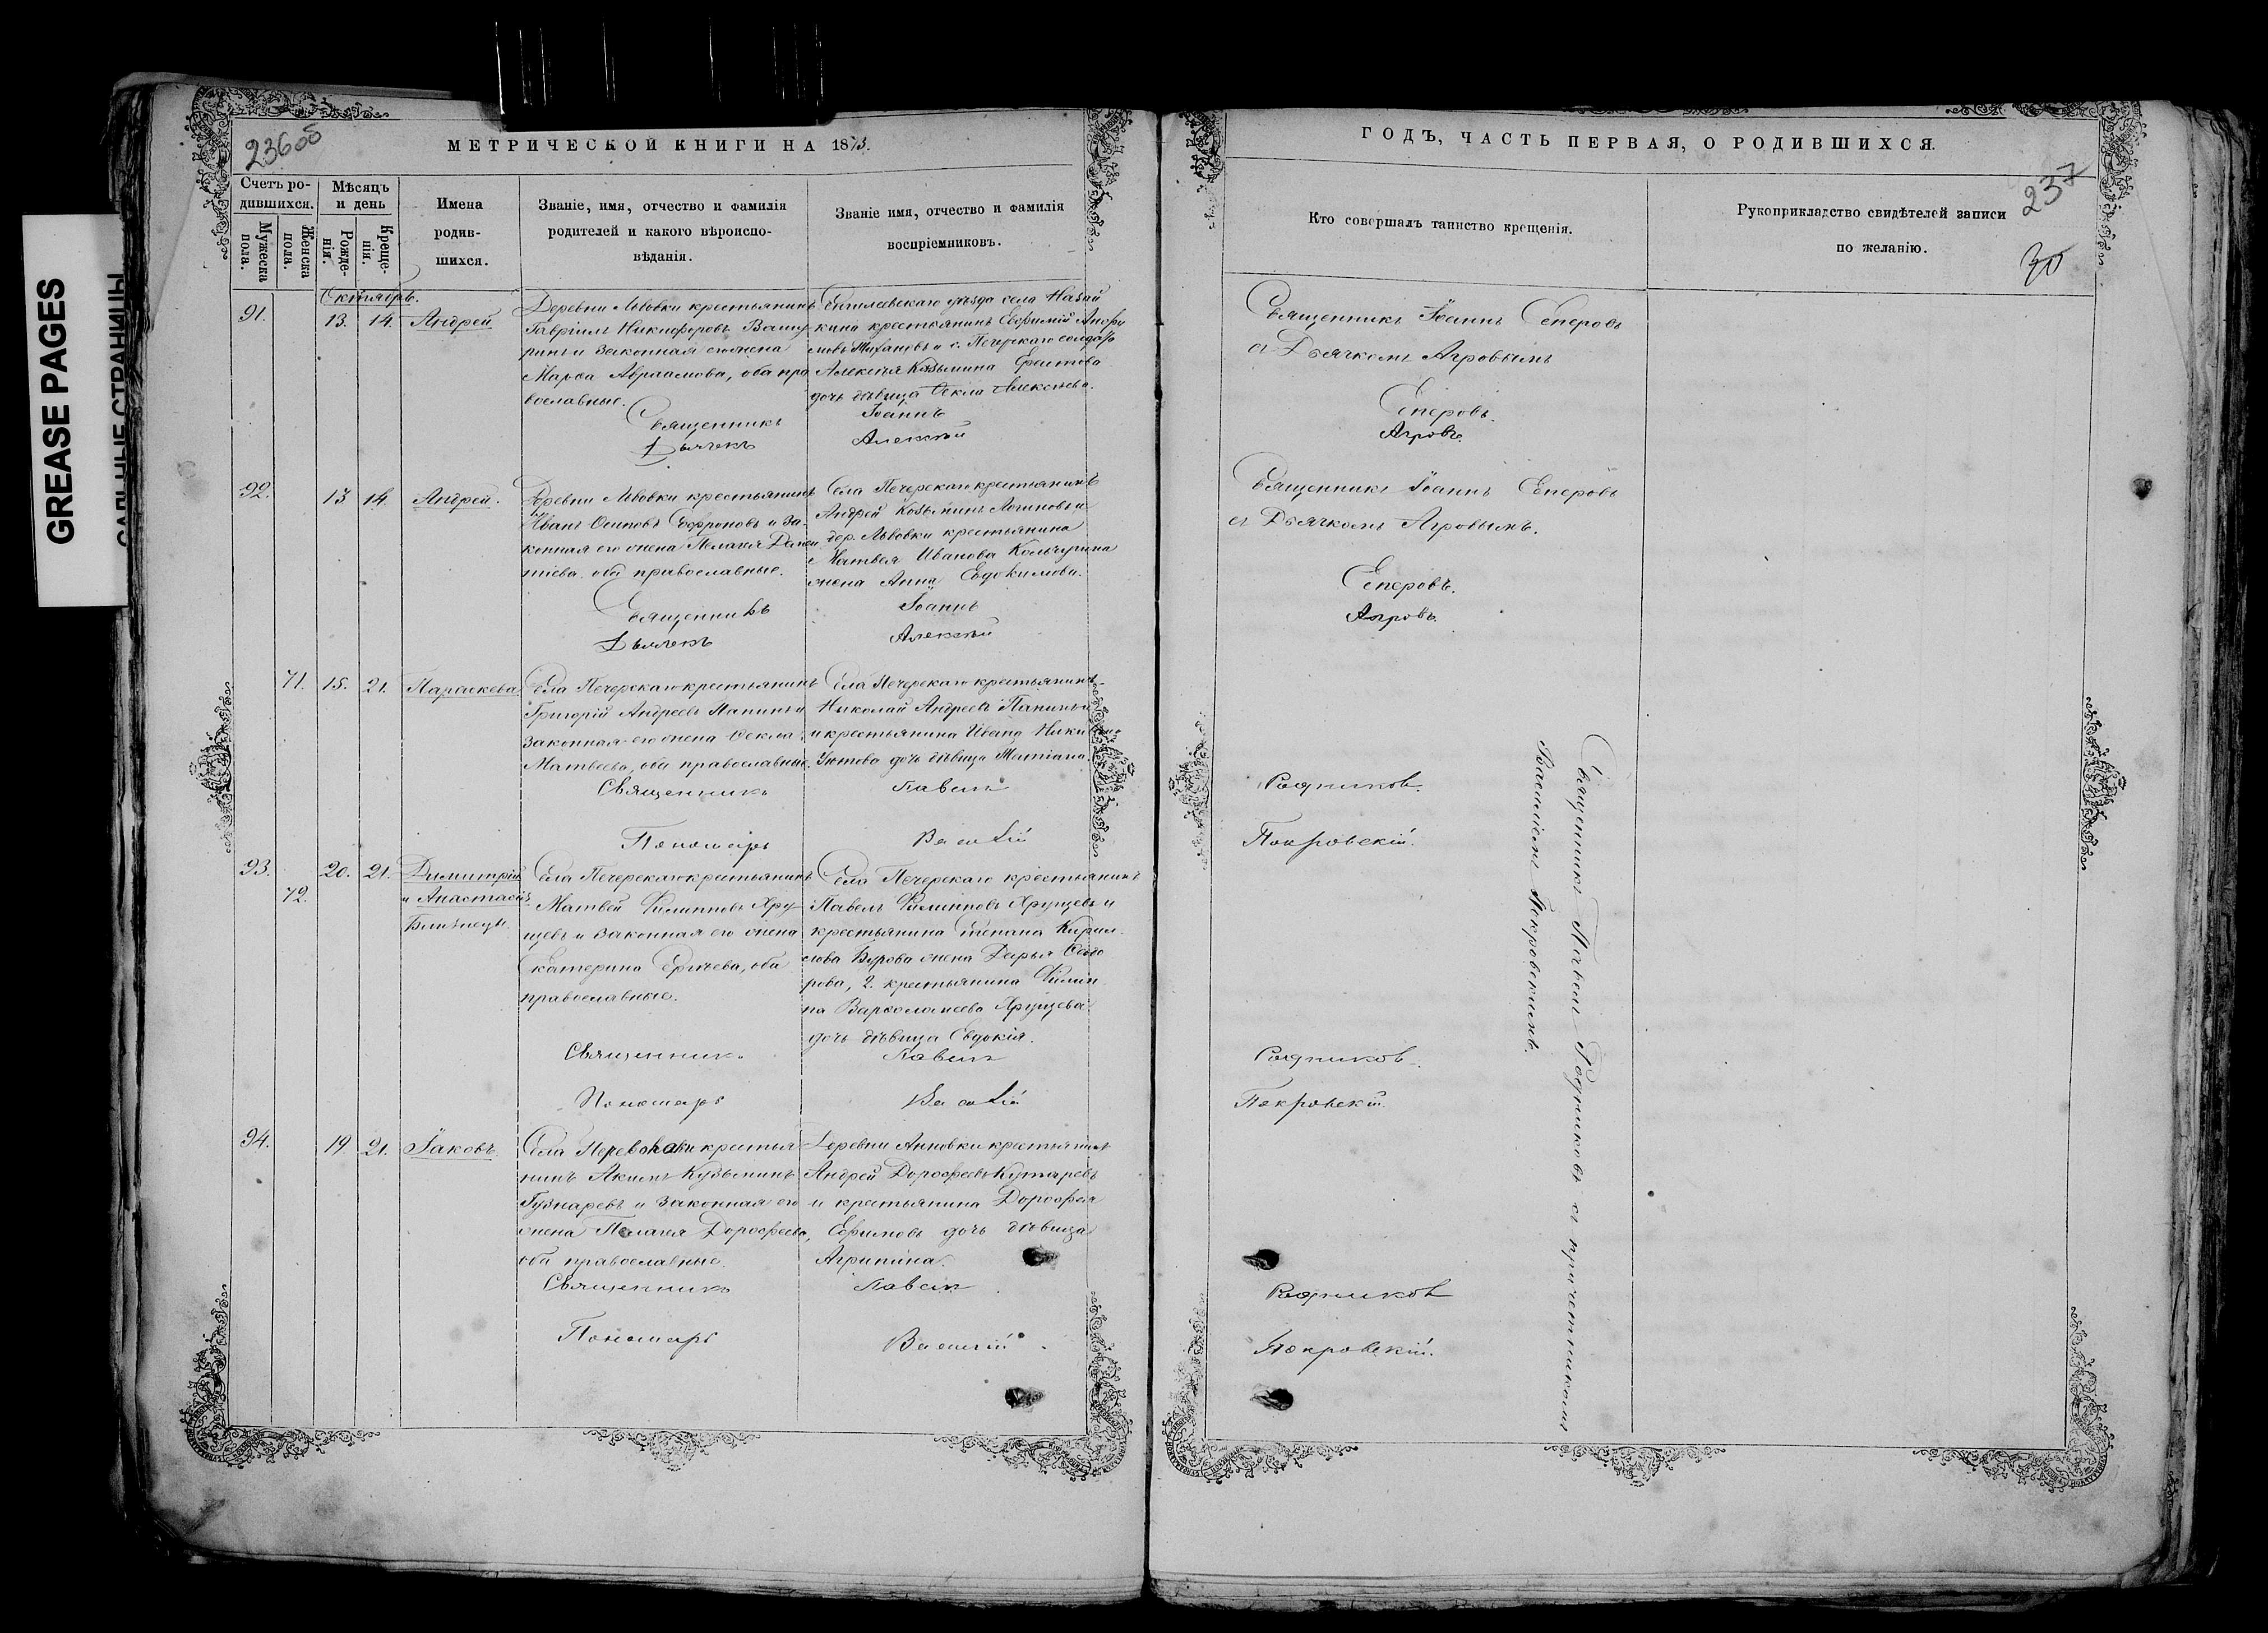 GREASE PAGES
САЛЬНЫЕ СТРАНИЦЫ
236об
МЕТРИЧЕСКОЙ КНИГИ НА 1873.
Счетъ родившихся.
Мужеска пола.
Женска пола.
Мѣсяцъ и день
Рожденія.
Крещенія.
Имена родившихся.
Званіе, имя, отчество и фамилія
родителей и какого вѣроиспо-
вѣданія.
Званіе имя, отчество и фамилія
воспріемниковъ.
Октябрь.
91. 13. 14. Андрей
Деревни Львовки крестьянинъ
Гавріилъ Никифоровъ
и законная его жена
Марѳа Авраамова, оба пра
вославные.
села
кина крестьянинъ Евфимій
и с. Печерскаго
Алексѣя Козьмина
дочь дѣвица Ѳекла Алексѣева.
Священникъ Іоаннъ
Дьячекъ Алексѣй
92. 13 14. Андрей.
Деревни Львовки крестьянинъ
Иванъ Осиповъ Софроновъ и за-
конная его жена Пелагея
оба православные.
Села Печерскаго крестьянинъ
Андрей Козьминъ Логиновъ и
дер. Львовки крестьянина
Матвея Иванова Кольчугина
жена Анна Евдокимова.
Священникъ Іоаннъ
Дьячекъ Алексѣй
71. 15. 21. Параскева
Села Печерскаго крестьянинъ
Григорій Андреевъ Папинъ и
законная его жена Ѳекла
Матвеева, оба православные.
Села Печерскаго крестьянинъ
Николай Андреевъ Папинъ и
крестьянина Ивана
дочь дѣвица
Священникъ Павелъ
Пономарь Василій
93. 72. 20. 21. Димитрій
и Анастасія
Близнецы.
Села Печерскаго крестьянинъ
Матвей Филипповъ Хру-
щевъ и законная его жена
Екатерина Сергѣева, оба
православные.
Села Печерскаго крестьянинъ
Павелъ Филипповъ Хрущевъ и
крестьянина Степана Кирил
лова жена Дарья Ѳедо
рова, 2. крестьянина Филип
па Варѳоломеева Хрущева
дочь дѣвица Евдокія.
Священникъ Павелъ
Пономарь Василій
94. 19 21. Іаковъ.
Села Переволоки крестья
нинъ Акимъ Кузьминъ
и законная его
жена Пелагея Дороѳеева,
оба православные.
Деревни Анновки крестьянинъ
Андрей Дороѳеевъ
и крестьянина Дороѳея
Ефимова дочь дѣвица
Агрипина.
Священникъ Павелъ
Пономарь Василій
ГОДЪ, ЧАСТЬ ПЕРВАЯ, О РОДИВШИХСЯ.
237
30
Кто совершалъ таинство крещенія.
Рукоприкладство свидѣтелей записи
по желанію.
Священникъ Іоаннъ Сеперовъ
съ Дьячкомъ Агровымъ
Сеперовъ.
Агровъ.
Священникъ Іоаннъ Сеперовъ
съ Дьячкомъ Агровымъ.
Сеперовъ.
Агровъ.
Священникъ Павелъ Родниковъ съ причетникомъ
Василіемъ Покровскимъ.
Родниковъ.
Покровскій.
Родниковъ.
Покровскій.
Родниковъ
Покровскій.